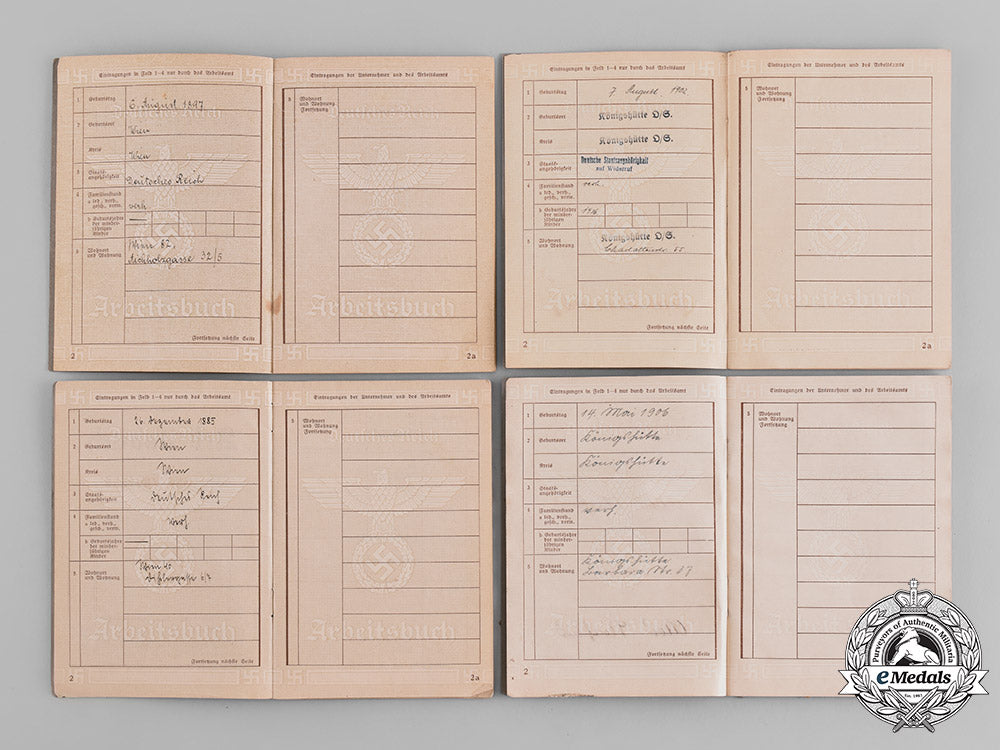 Eintragungen in Feld 1—4 nur durch das Arbeitsamt
1 Geburtstag 6. August 1897
2 Geburtsort Wien
Kreis Wien
3 Staats-
angehörigkeit Deutsches Reich
4 Familienstand
a led., verh.,
gesch., verw. verh.
b Geburtsjahre
der minder-
jährigen
Kinder
5 Wohnort
und Wohnung Wien 82,
32/5
Arbeitsbuch
Fortsetzung nächste Seite
2
Eintragungen der Unternehmer und des Arbeitsamts
5 Wohnort
und Wohnung
Fortsetzung
Arbeitsbuch
2a
Eintragungen in Feld 1—4 nur durch das Arbeitsamt
1 Geburtstag 7 August 1902
2 Geburtsort Königshütte O/S.
Kreis Königshütte O/S.
3 Staats-
angehörigkeit Deutsche Staatsangehörigkeit
auf Widerruf
4 Familienstand
a led., verh.,
gesch., verw. verh.
b Geburtsjahre
der minder-
jährigen
Kinder
5 Wohnort
und Wohnung Königshütte O/S.
Arbeitsbuch
Fortsetzung nächste Seite
2
Eintragungen der Unternehmer und des Arbeitsamts
5 Wohnort
und Wohnung
Fortsetzung
2a
Eintragungen in Feld 1—4 nur durch das Arbeitsamt
1 Geburtstag 26 Dezember 1885
2 Geburtsort Wien
Kreis Wien
3 Staats-
angehörigkeit Deutsches Reich
4 Familienstand
a led., verh.,
gesch., verw. verh
b Geburtsjahre
der minder-
jährigen
Kinder
5 Wohnort
und Wohnung Wien 10
Arbeitsbuch
Fortsetzung nächste Seite
2
Eintragungen der Unternehmer und des Arbeitsamts
5 Wohnort
und Wohnung
Fortsetzung
Arbeitsbuch
2a
Eintragungen in Feld 1—4 nur durch das Arbeitsamt
1 Geburtstag 14. Mai 1906
2 Geburtsort Königshütte
Kreis Königshütte
3 Staats-
angehörigkeit
4 Familienstand
a led., verh.,
gesch., verw. verh.
b Geburtsjahre
der minder-
jährigen
Kinder
5 Wohnort
und Wohnung Königshütte
Barbara Str.
Fortsetzung nächste Seite
2
Eintragungen der Unternehmer und des Arbeitsamts
5 Wohnort
und Wohnung
Fortsetzung
Purveyors of Authentic Militaria
eMedals